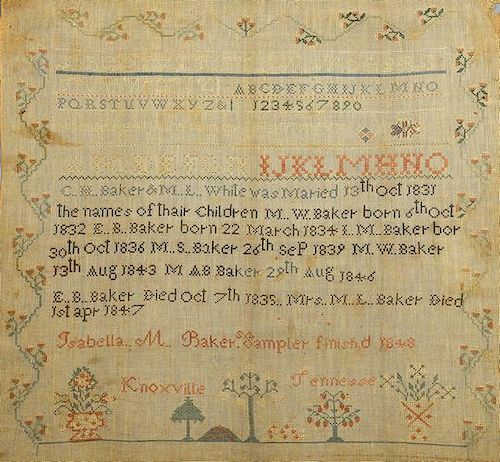 ABCDEFGHIJKLMNO
PQRSTUVWXYZ&1 1234567890
IJKLMHNO
C. H. Baker & M.. L.. White was Maried 13th Oct 1831
the names of thair Children M.. W. Baker born 6th Oct
1832 E.. B.. Baker born 22 March 1834 I.. M.. Baker bor
30th Oct 1836 M.. S.. Baker 26th SeP 1839 M.. W. Baker
13th Aug 1843 M A B Baker 29th Aug 1846
E.. B.. Baker Died Oct 7th 1835.. Mrs.. M.. L.. Baker Died
1st apr 1847
Isabella.. M.. Bakers Sampler finish,d 1848
Knoxville Tennesse